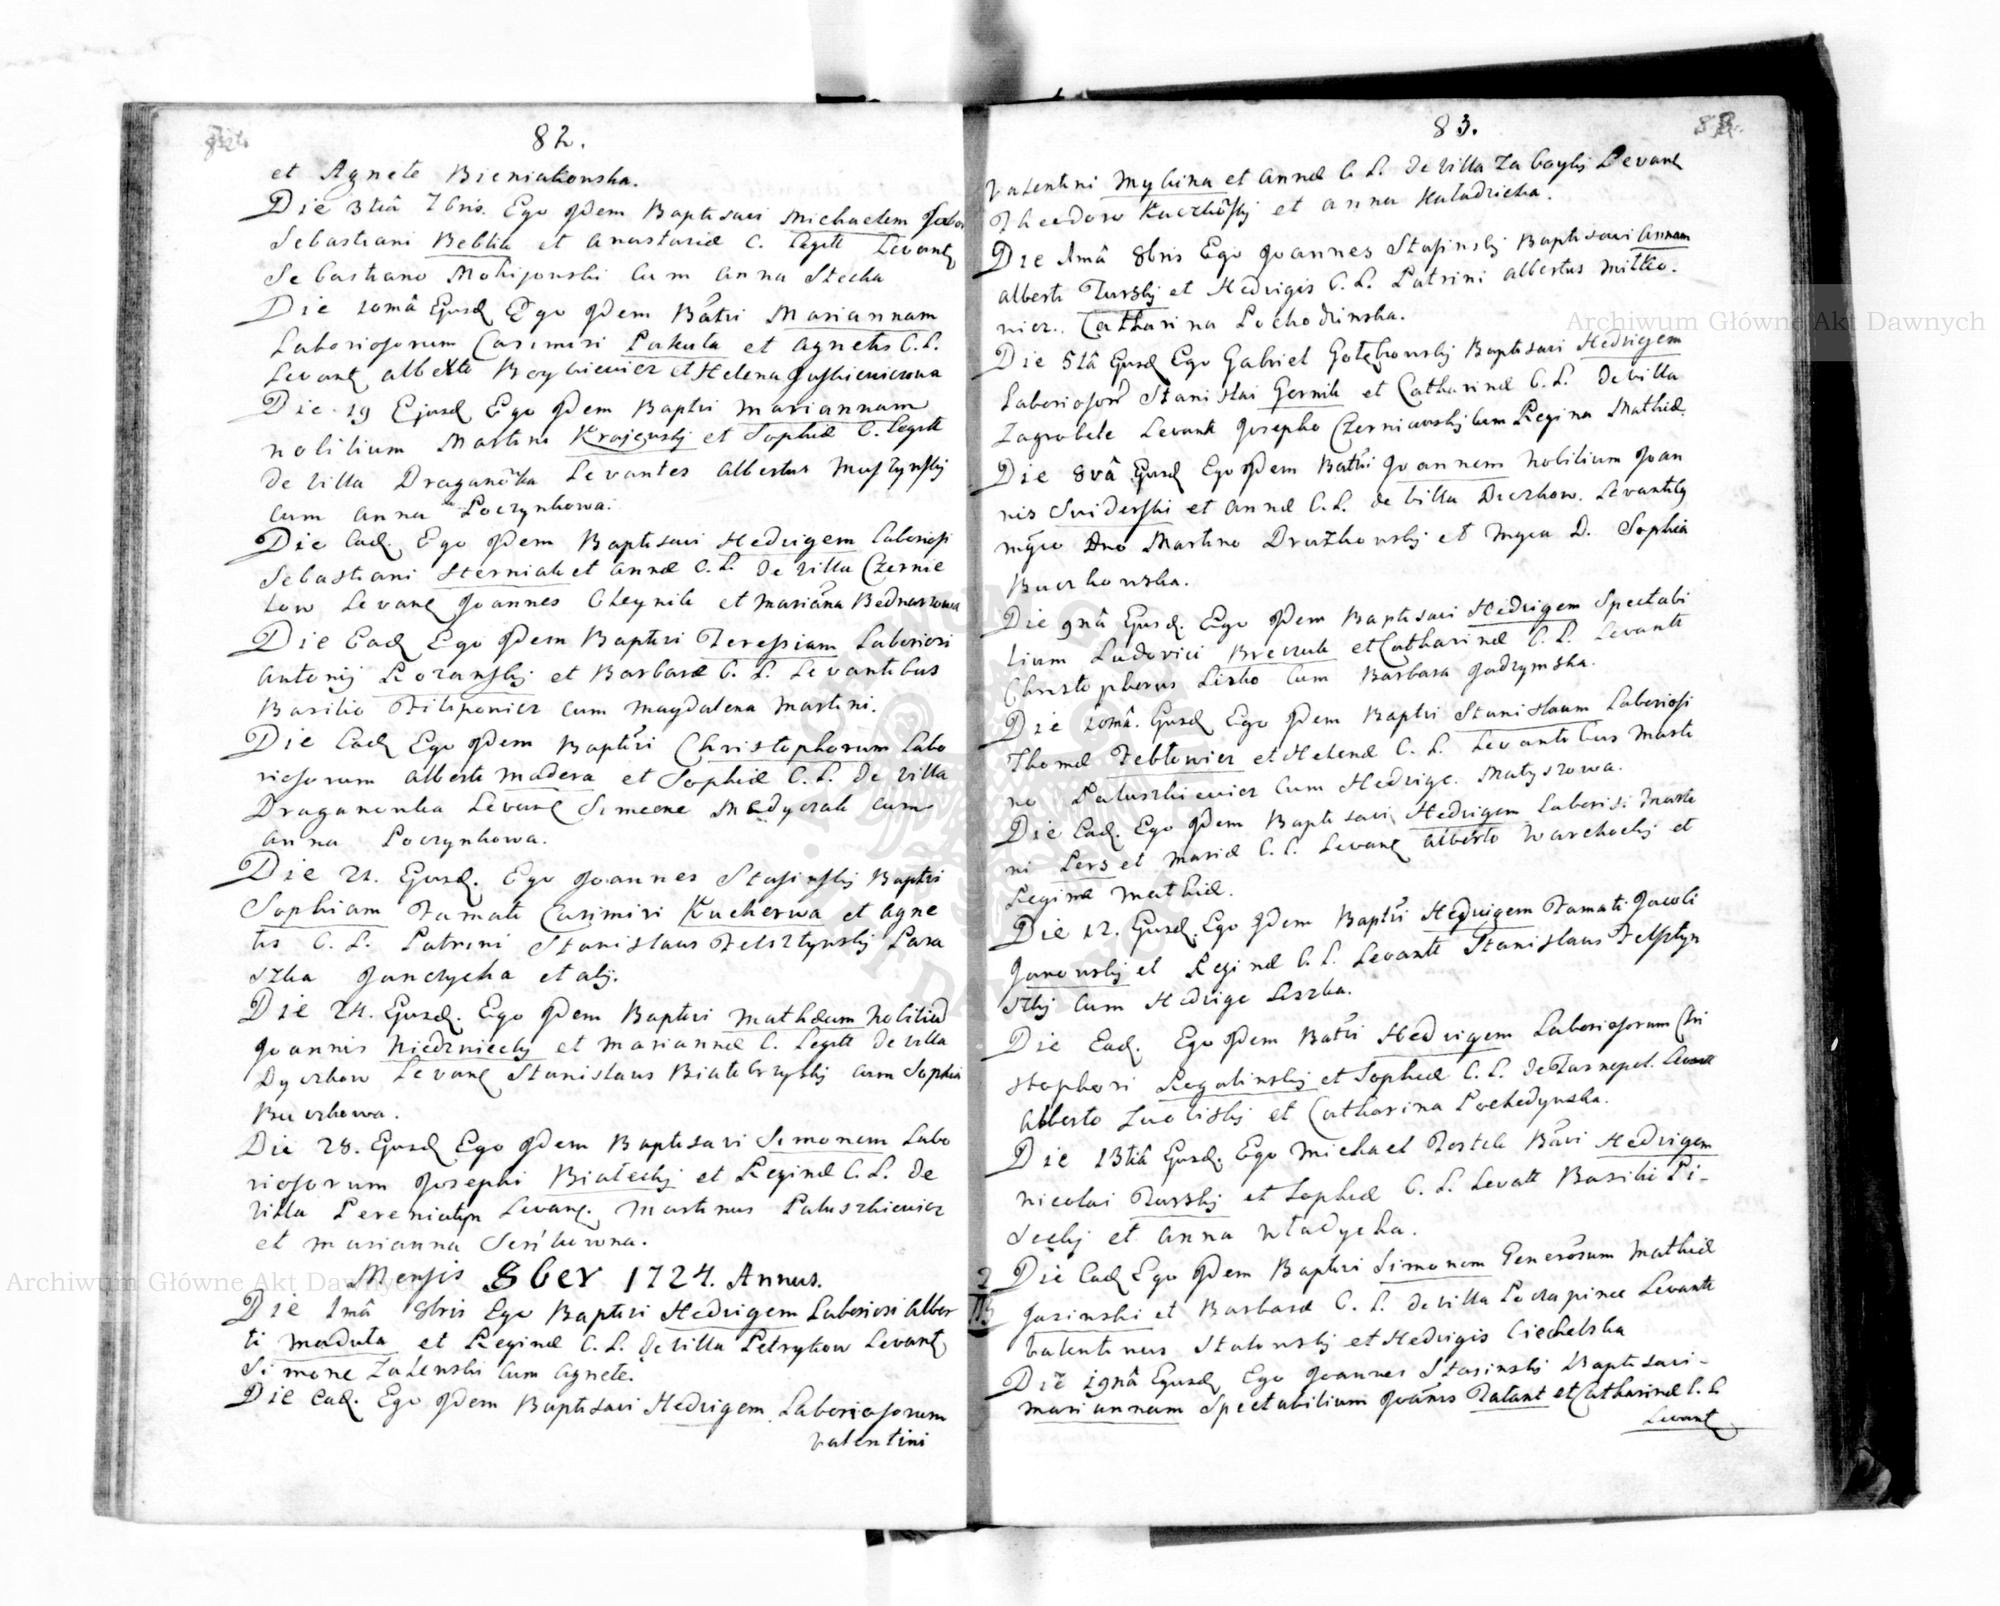 82.
et Agnete Bieniakonska.
Die 3tiâ 7bris. Ego Idem Baptisavi Michaelem Labor
Sebastiani Beblik et Anastasiæ C. Legitt Levantq
Sebastiano Mokijonski Cum Anna Stecka
Die 10mâ Ejusd Ego Idem Batvi Mariannam
Laboriosorum Casimiri Pakula et Agnetis C. L.
Levant Alberti Boykiewicz et Helena Juskiewiczowa
Die 19 Ejusd Ego Idem Baptvi Mariannam
nobilium Martini Krajewskij et Sophiæ C. Legitt
de Villa Draganowka Levantes Albertus Muszynskij
cum Anna Poczynkowa.
Die Ead. Ego Idem Baptisavi Hedvigem Laboriosi
Sebastiani Sterniak et Annæ C. L. De Villa Czernie
low Levant Joannes Oleynik et Marianna Bednarzowa
Die Ead Ego Idem Baptvi Teressiam Laboriosi
Antonij Rozanskij et Barbaræ C. L. Levantibus
Basilio Filiponicz cum Magdalena Martini.
Die Ead Ego Idem Baptvi Christophorum Labo
riosorum Alberti Madera et Sophiæ C. L. De Villa
Draganonka Levant Simeone Medyczak cum
Anna Poczynkowa.
Die 21. Ejusd. Ego Joannes Stasinskij Baptvi
Sophiam Famati Casimiri Kucherwa et Agne
tis C. L. Patrini Stanislaus Felsztynskij Para
szka Janczycha et alij.
Die 24. Ejusd. Ego Idem Baptvi Mathæum Nobiliū
Joannis Niedzwieckij et Mariannæ C. Legitt De Villa
Dyczkow Levant Stanislaus Bialobrzyskij cum Sophia
Buczkowa.
Die 28. Ejusd Ego Idem Baptisavi Simonem Labo
riosorum Josephi Bialeckij et Reginæ C. L. De
Villa Pereniatyn Levant. Martinus Paluszkiewicz
et Marianna
Mensis 8ber 1724. Annus.
Die 1mâ 8bris Ego Baptvi Hedvigem Laboriosi Alber
ti Maduta et Reginæ C. L. De Villa Petrykow Levant
Simone Zalenski Cum Agnete.
Die Ead. Ego Idem Baptisavi Hedvigem Laboriosorum
Valentini
83.
Valentini Mykina et Annæ C. L. De Villa Zaboyky Levant
Theodoro et Anna Kaladzicha.
Die 1mâ 8bris Ego Joannes Stasinskij Baptisavi Annam
Alberti Turskij et Hedvigis C. L. Patrini Albertus Mitko-
nicz. Catharina Pochodzinska.
Die 5tâ Ejusd Ego Gabriel Golębowskij Baptisavi Hedvigem
Laboriosorum Stanislai Gernik et Catharinæ C. L. De Villa
Zagrobele Levant Josepho Czerniawskij cum Regina Mathiæ.
Die 8vâ Ejusd Ego Idem Batvi Joannem Nobilium Joan
nis Swiderski et Annæ C. L. de Villa Diczkow. Levantibq
mgco Dno Martino Druzkowskij et Mgca D. Sophia
Buczkowska.
Die 9nâ Ejusd. Ego Idem Baptisavi Hedvigem Spectabi
lium Ludovici Breczuk et Catharinæ C. L. Levante
Christophorus Lisko Cum Barbara Jadzymska.
Die 10mâ. Ejusd Ego Idem Baptvi Stanislaum Laboriosi
Thomæ Feblowicz et Helenæ C. L. Levantibus Marti
no Paluszkiewicz Cum Hedvige. Matyszowa.
Die Ead. Ego Idem Baptisavi Hedvigem Laboriosi Marti
ni Pers et Mariæ C. L. Levant Alberto Warchockij et
Reginæ Mathiæ.
Die 12. Ejusd. Ego Idem Baptvi Hedvigem Famati Jacobi
Janowskij et Reginæ C. L. Levante Stanislaus Felsztyn
szkij Cum Hedvige Liszka.
Die Ead. Ego Idem Batvi Hedvigem Laboriosorum Chri
stophori Rogalinskij et Sophiæ C. L. De Tarnopol.
Alberto et Catharina Pochodynska.
Die 13tiâ Ejusd. Ego Michael Bavi Hedvigem
Nicolai Turskij et Sophiæ C. L. Levatt Basilii Pi-
seckij et Anna Wladycha.
Die Ead Ego Idem Baptvi Simonem Generosum Mathiæ
Jasinski et Barbaræ C. L. de Villa Poczapince Levante
Valentinus Stalonskij et Hedvigis Ciechelska
Die 19nâ Ejusd Ego Joannes Stasinskij Baptisavi-
Mariannam Spectabilium Joannis Talant et Catharinæ C. L
Levant
Archiwum Główne Akt Dawnych
Archiwum Główne Akt Dawnych